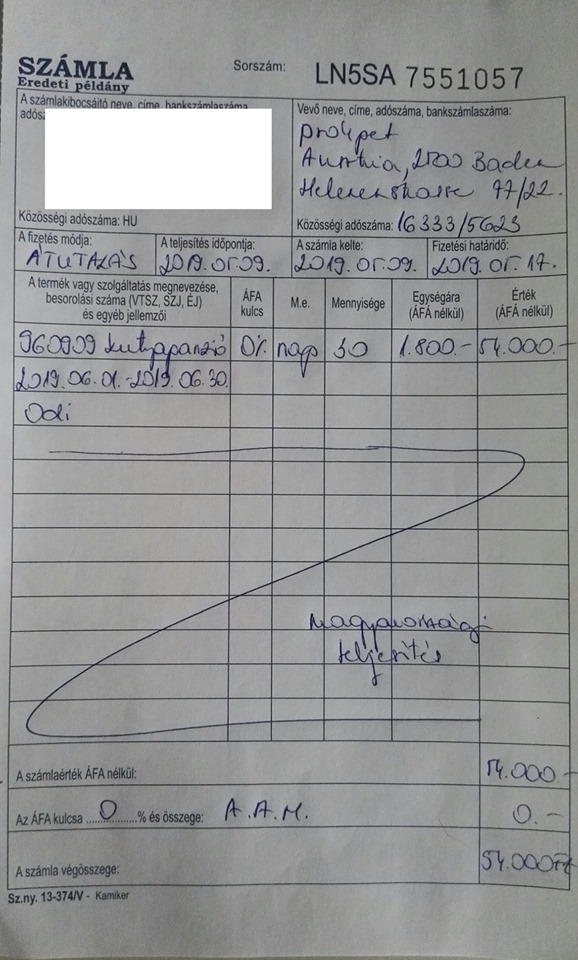 SZÁMLA
Eredeti példány
Sorszám: LN5SA 7551057
A számlakibocsájtó neve, címe, bankszámlaszáma
adós
Közösségi adószáma: HU
Vevő neve, címe, adószáma, bankszámlaszáma:
pro4pet
Austria, 2500 Baden
Helenenstrasse 77/22.
Közösségi adószáma: 16333/5623
A fizetés módja:
ÁTUTALÁS
A teljesítés időpontja:
2019.05.09.
A számla kelte:
2019.05.09.
Fizetési határidő:
2019.05.17.
A termék vagy szolgáltatás megnevezése,
besorolási száma (VTSZ, SZJ, ÉJ)
és egyéb jellemzői
ÁFA
kulcs
M.e.
Mennyisége
Egységára
(ÁFA nélkül)
Érték
(ÁFA nélkül)
960909 kutyapanzió 0% nap 30 1.800.- 54.000.-
2019.06.01.-2019.06.30.
Odi
magyarországi
teljesítés
A számlaérték ÁFA nélkül: 54.000.-
Az ÁFA kulcsa 0 % és összege: A.A.M. 0.-
A számla végösszege: 54.000Ft
Sz.ny. 13-374/V - Kamiker